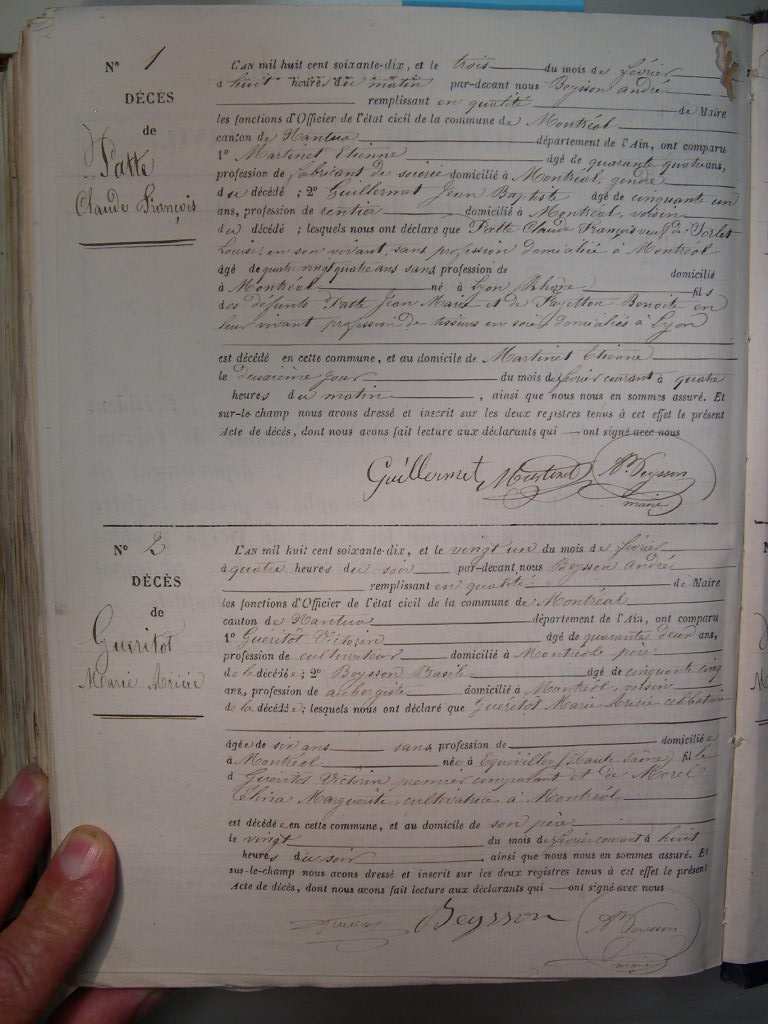 N° 1
DÉCÈS
de
Patte
Claude François
L'AN mil huit cent soixante-dix, et le trois du mois de février
à huit heures du matin par-devant nous Beysson André
remplissant en qualité de Maire
les fonctions d'Officier de l'état civil de la commune de Montréal
canton de Nantua département de l'Ain, ont comparu
1° Martinet Etienne âgé de quarante quatre ans,
profession de fabricant de soierie domicilié à Montréal, gendre
du décédé ; 2° Guillermet Jean Baptiste âgé de cinquante un
ans, profession de rentier domicilié à Montréal, voisin
du décédé ; lesquels nous ont déclaré que Patte Claude François veuf de
Louise en son vivant, sans profession domiciliée à Montréal
âgé de quatre vingt quatre ans sans profession de domicilié
à Montréal né à Lyon Rhône fils
des défunts Patte Jean Marie et de Benoite en
leur vivant profession de tissus en soie domiciliés à Lyon
est décédé en cette commune, et au domicile de Martinet Etienne
le deuxième jour du mois de février courant à quatre
heures du matin , ainsi que nous nous en sommes assuré. Et
sur-le-champ nous avons dressé et inscrit sur les deux registres tenus à cet effet le présent
Acte de décès, dont nous avons fait lecture aux déclarants qui ont signé avec nous
Guillermet Martinet An. Beysson
maire
N° 2
DÉCÈS
de
Gueritot
Marie
L'AN mil huit cent soixante-dix, et le vingt un du mois de février
à quatre heures du soir par-devant nous Beysson André
remplissant en qualité de Maire
les fonctions d'Officier de l'état civil de la commune de Montréal
canton de Nantua département de l'Ain, ont comparu
1° Gueritot Victorin âgé de quarante deux ans,
profession de cultivateur domicilié à Montréal père
de la décédée ; 2° Beysson Basile âgé de cinquante cinq
ans, profession de aubergiste domicilié à Montréal, voisin
de la décédée ; lesquels nous ont déclaré que Gueritot Marie célibataire
âgée de six ans sans profession de domiciliée
à Montréal née à (Haute Saône) fille
d Gueritot Victorin premier comparant et de Morel
Marguerite, cultivatrice à Montréal
est décédée en cette commune, et au domicile de son père
le vingt du mois de février courant à huit
heures du soir , ainsi que nous nous en sommes assuré. Et
sur-le-champ nous avons dressé et inscrit sur les deux registres tenus à cet effet le présent
Acte de décès, dont nous avons fait lecture aux déclarants qui ont signé avec nous
Beysson An. Beysson
maire